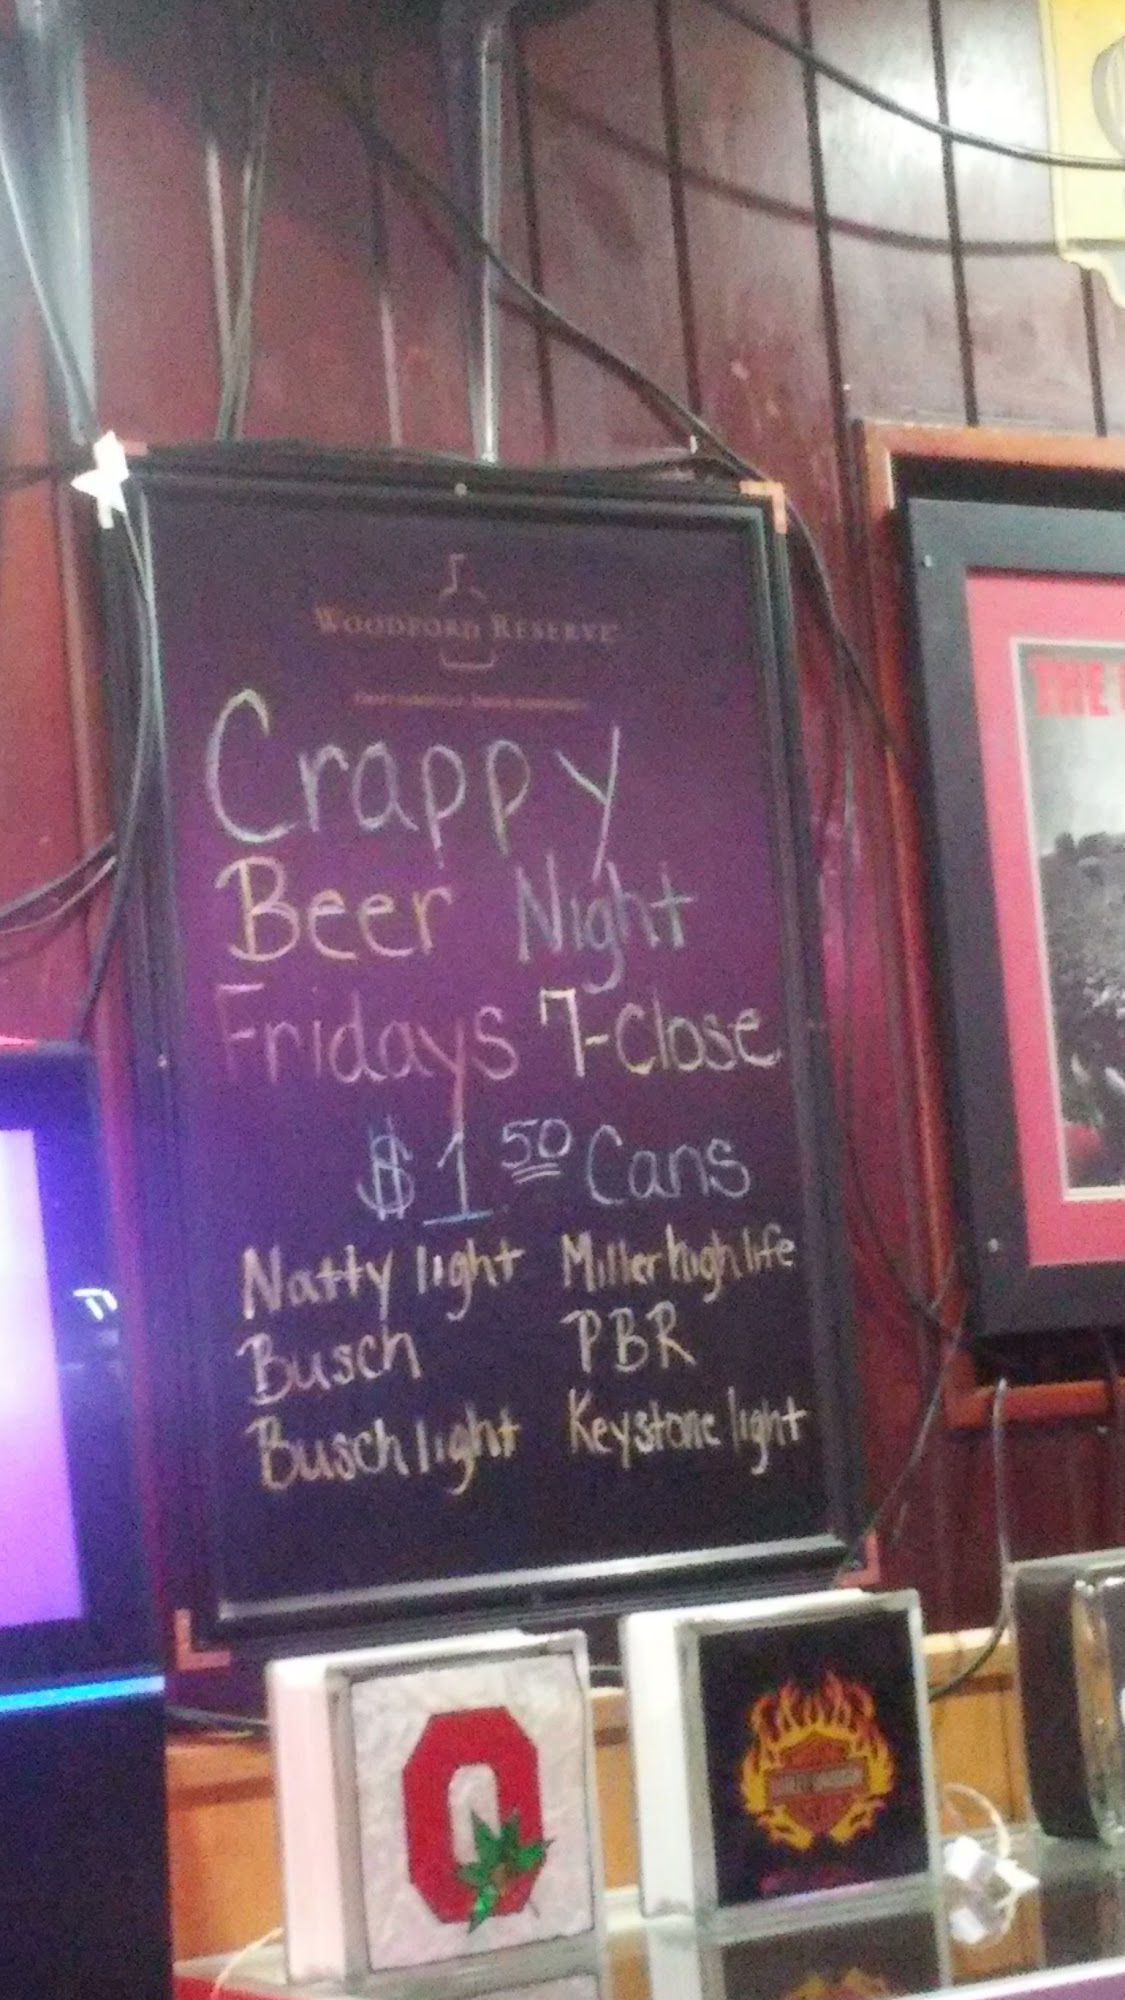 WOODFORD RESERVE
Crappy
Beer Night
Fridays 7-Close
$1.50 Cans
Natty light Miller high life
Busch PBR
Busch light Keystone light
THE
O
HARLEY-DAVIDSON